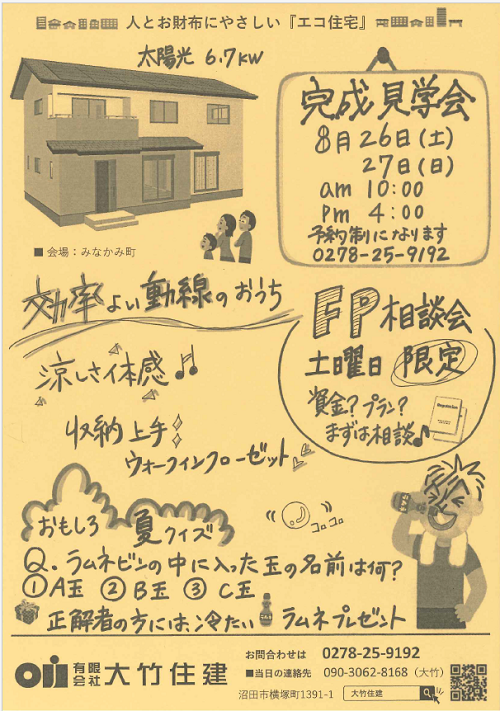 人とお財布にやさしい『エコ住宅』
太陽光 6.7KW
完成見学会
8月26日(土)
27日(日)
am 10:00
pm 4:00
予約制になります
0278-25-9192
■会場：みなかみ町
効率よい動線のおうち
FP相談会
土曜日 限定
資金?プラン?
まずは相談♪
涼しさ体感♫
収納上手
ウォークインクローゼット
おもしろ 夏クイズ
コロコロ
Q.ラムネビンの中に入った玉の名前は何?
①A玉 ②B玉 ③C玉
正解者の方には、冷たい ラムネプレゼント
有限会社 大竹住建
お問合わせは 0278-25-9192
■当日の連絡先 090-3062-8168（大竹）
沼田市横塚町1391-1 大竹住建